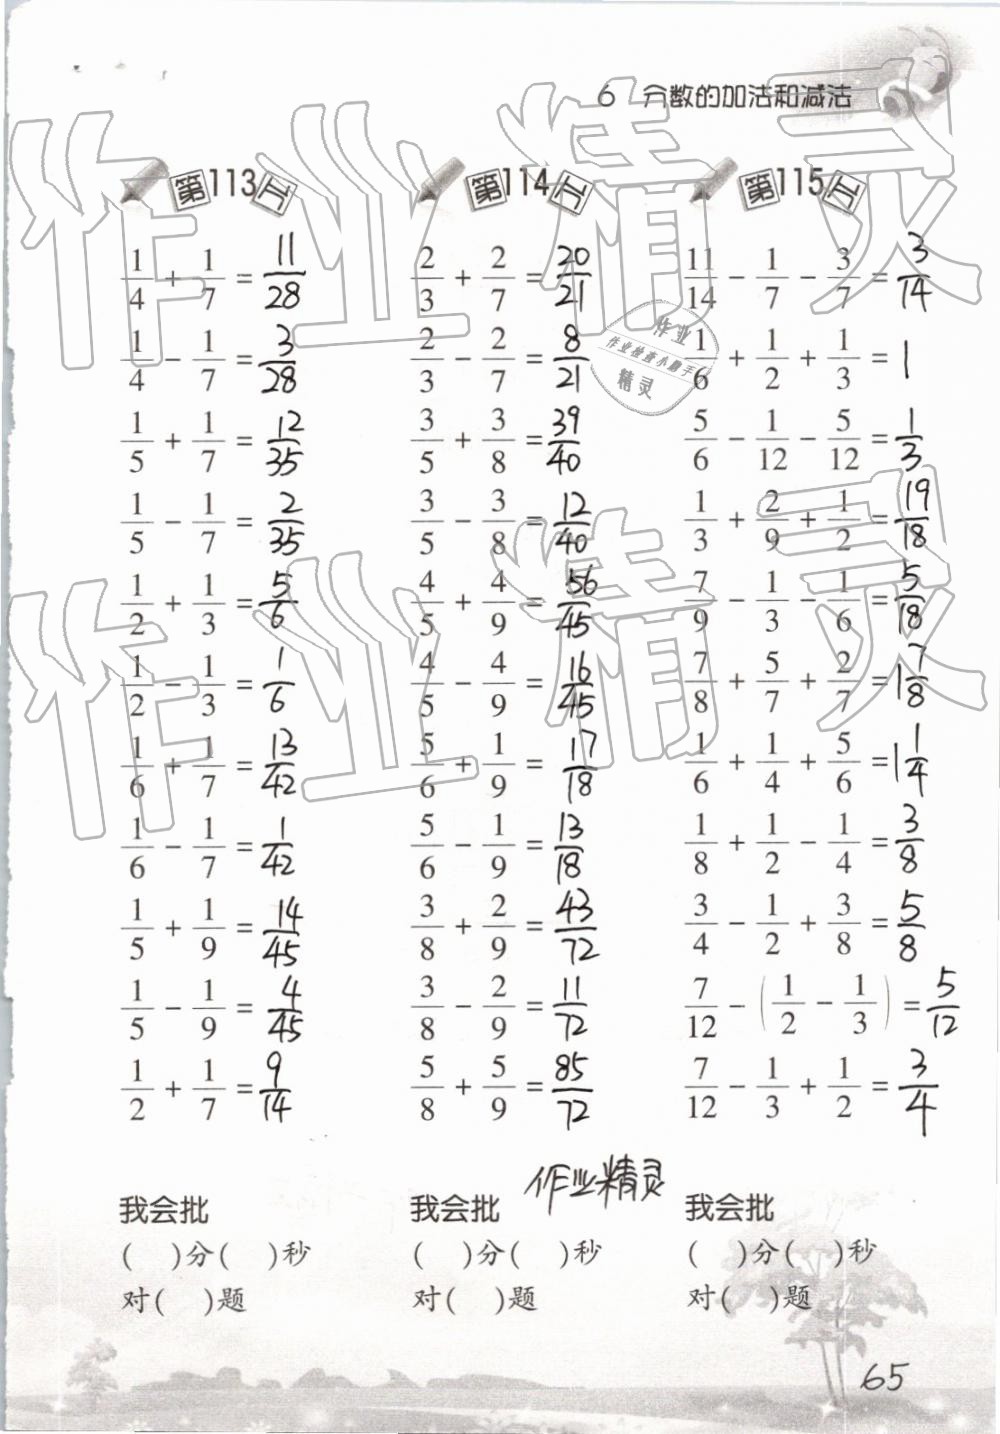 6 分数的加法和减法
第113天
1/4 + 1/7 = 11/28
1/4 - 1/7 = 3/28
1/5 + 1/7 = 12/35
1/5 - 1/7 = 2/35
1/2 + 1/3 = 5/6
1/2 - 1/3 = 1/6
1/6 + 1/7 = 13/42
1/6 - 1/7 = 1/42
1/5 + 1/9 = 14/45
1/5 - 1/9 = 4/45
1/2 + 1/7 = 9/14
我会批
( )分( )秒
对( )题
第114天
2/3 + 2/7 = 20/21
2/3 - 2/7 = 8/21
3/5 + 3/8 = 39/40
3/5 - 3/8 = 12/40
4/5 + 4/9 = 56/45
4/5 - 4/9 = 16/45
5/6 + 1/9 = 17/18
5/6 - 1/9 = 13/18
3/8 + 2/9 = 43/72
3/8 - 2/9 = 11/72
5/8 + 5/9 = 85/72
作业精灵
我会批
( )分( )秒
对( )题
第115天
11/14 - 1/7 - 3/7 = 3/14
1/6 + 1/2 + 1/3 = 1
5/6 - 1/12 - 5/12 = 1/3
1/3 + 2/9 + 1/2 = 19/18
7/9 - 1/3 - 1/6 = 5/18
7/8 + 5/7 + 2/7 = 1 7/8
1/6 + 1/4 + 5/6 = 1 1/4
1/8 + 1/2 - 1/4 = 3/8
3/4 - 1/2 + 3/8 = 5/8
7/12 - (1/2 - 1/3) = 5/12
7/12 - 1/3 + 1/2 = 3/4
我会批
( )分( )秒
对( )题
65
作业精灵
作业精灵
作业
作业检查小助手
精灵